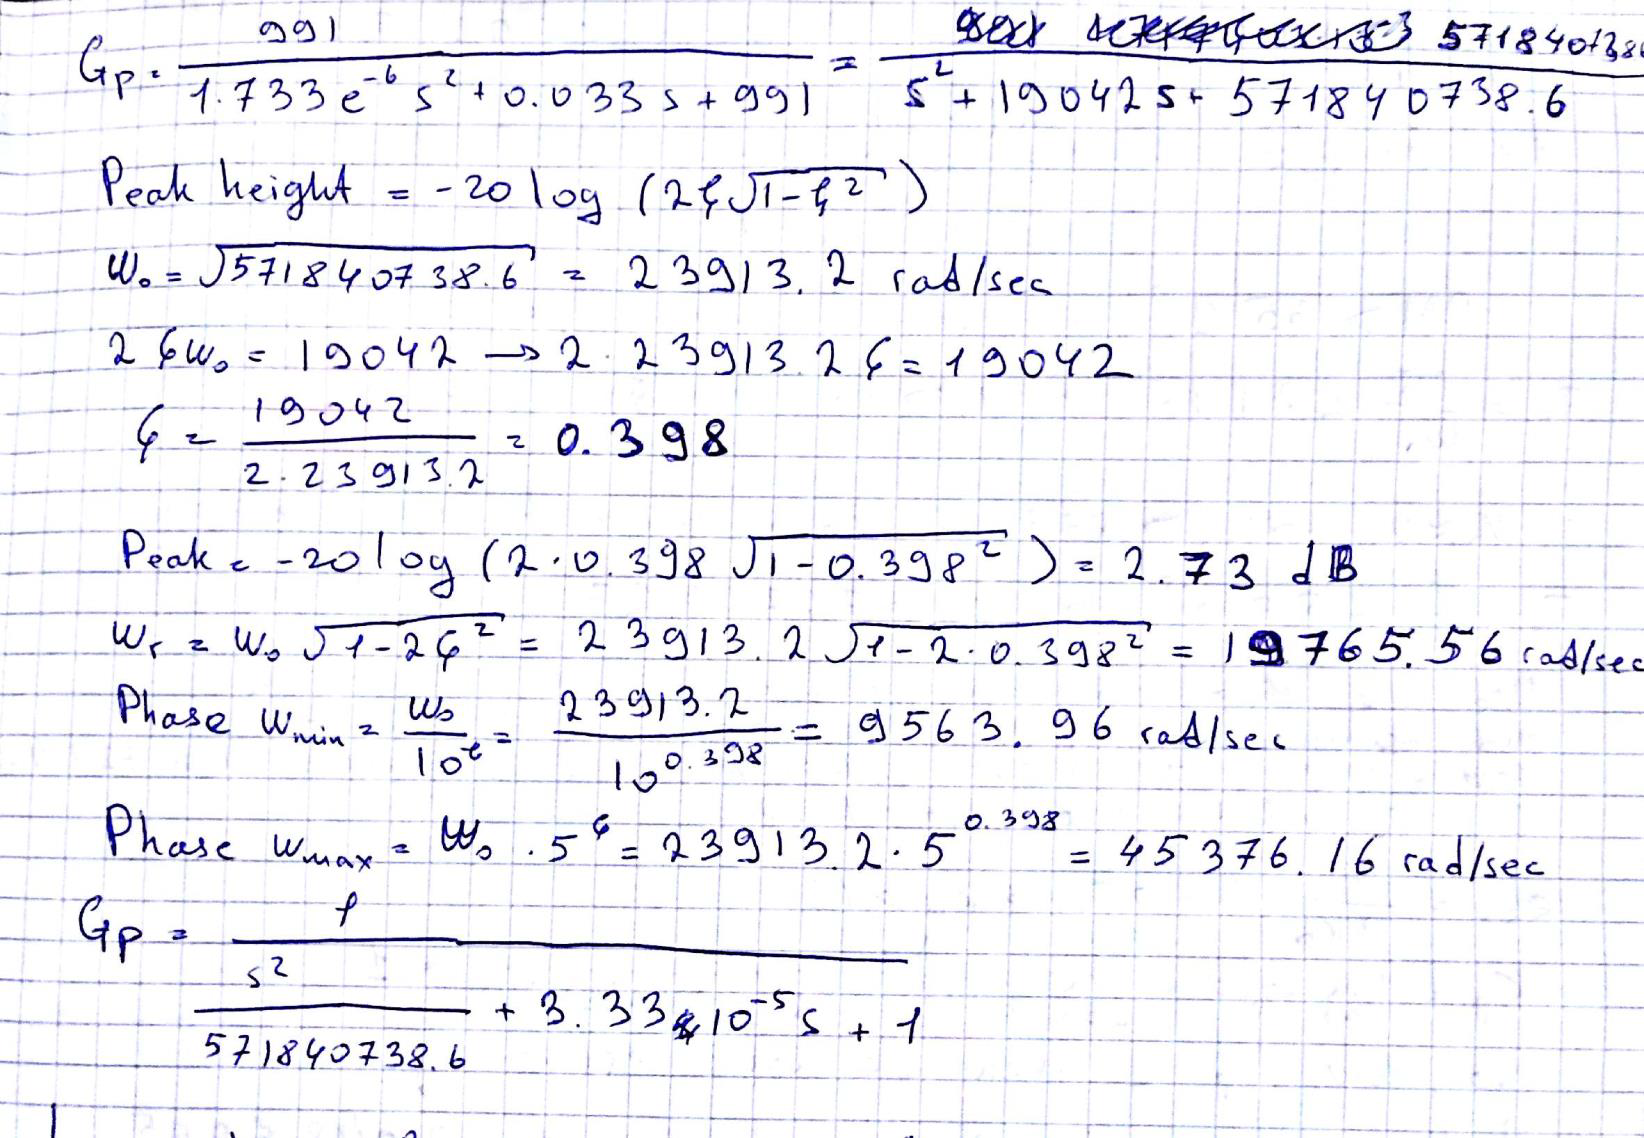 Gp = 991 / (1.733e⁻⁶ s² + 0.033 s + 991) = 571840738.6 / (s² + 19042 s + 571840738.6)
Peak height = -20 log (2ζ√(1-ζ²))
ω₀ = √571840738.6 = 23913.2 rad/sec
2ζω₀ = 19042 → 2·23913.2ζ = 19042
ζ = 19042 / (2·23913.2) = 0.398
Peak = -20 log (2·0.398 √(1-0.398²)) = 2.73 dB
ωr = ω₀ √(1-2ζ²) = 23913.2 √(1-2·0.398²) = 19765.56 rad/sec
Phase ωmin = ω₀ / 10^ζ = 23913.2 / 10^0.398 = 9563.96 rad/sec
Phase ωmax = ω₀ · 5^ζ = 23913.2 · 5^0.398 = 45376.16 rad/sec
Gp = 1 / (s² / 571840738.6 + 3.33 × 10⁻⁵ s + 1)